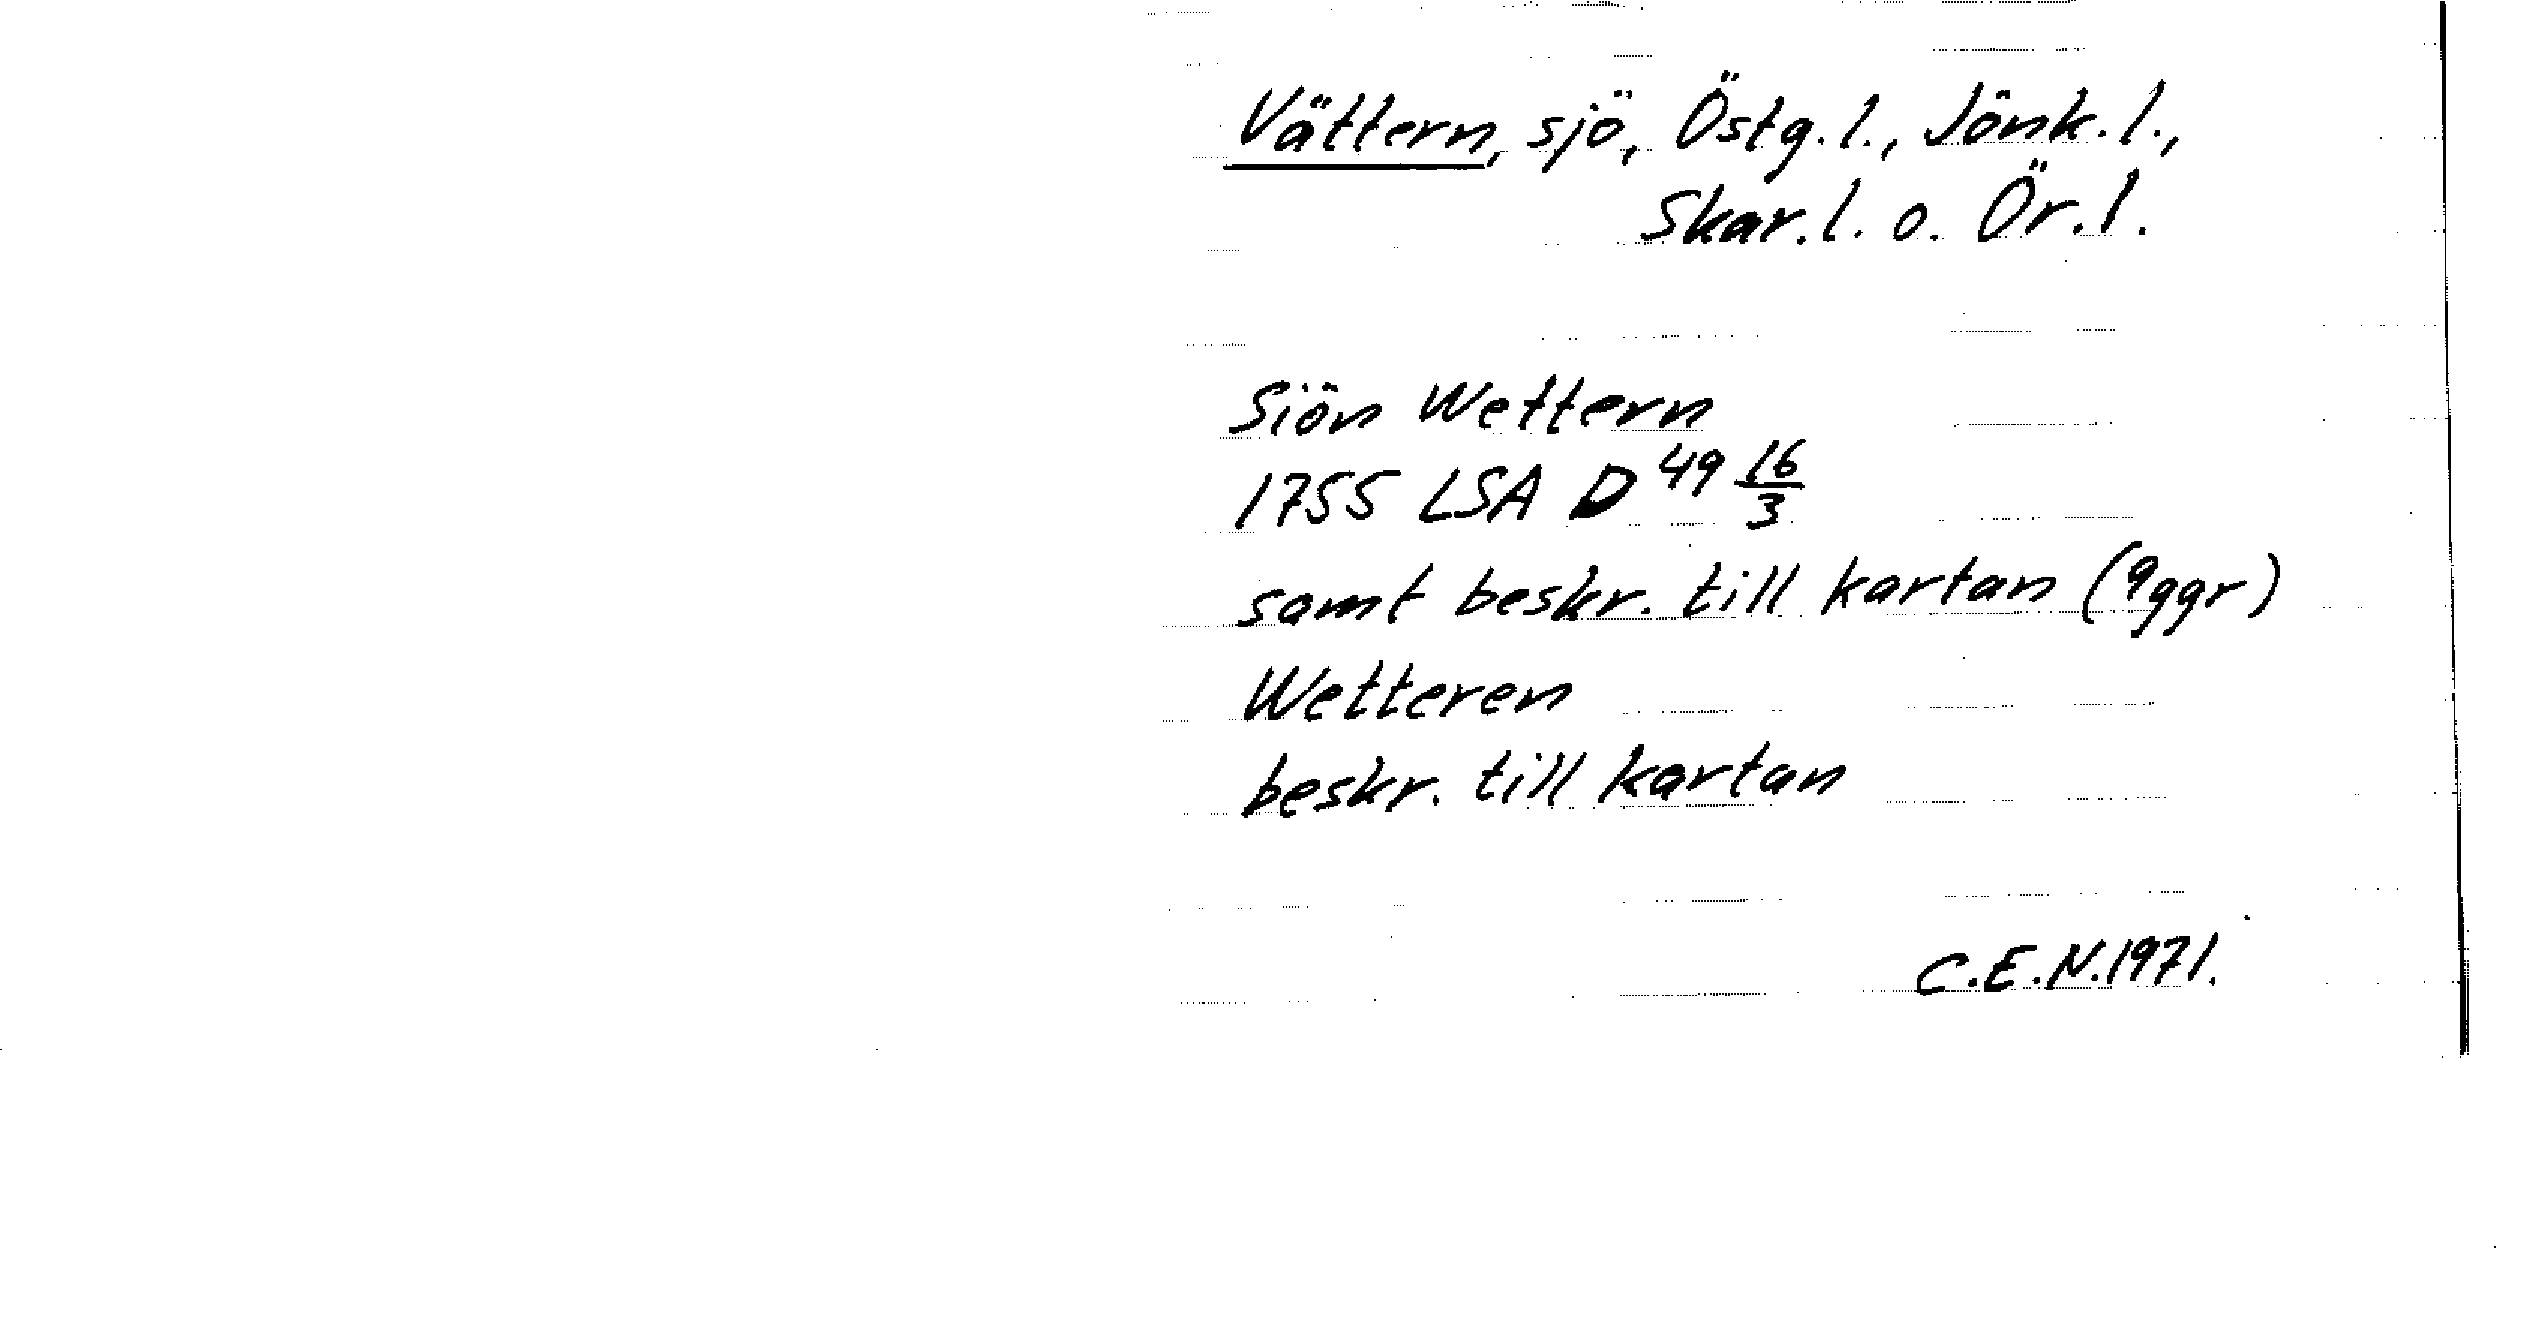 Vättern, sjö, Östg.l., Jönk.l.,
Skar.l. o. Ör.l.
Siön Wettern
1755 LSA D 49 16/3
samt beskr. till kartan (9ggr)
Wetteren
beskr. till kartan
C.E.N.1971.